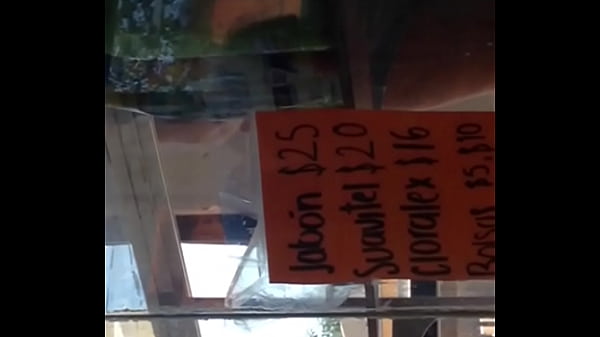 Jabón $25
Suavitel $20
Cloralex $16
Bolsas $5, $10